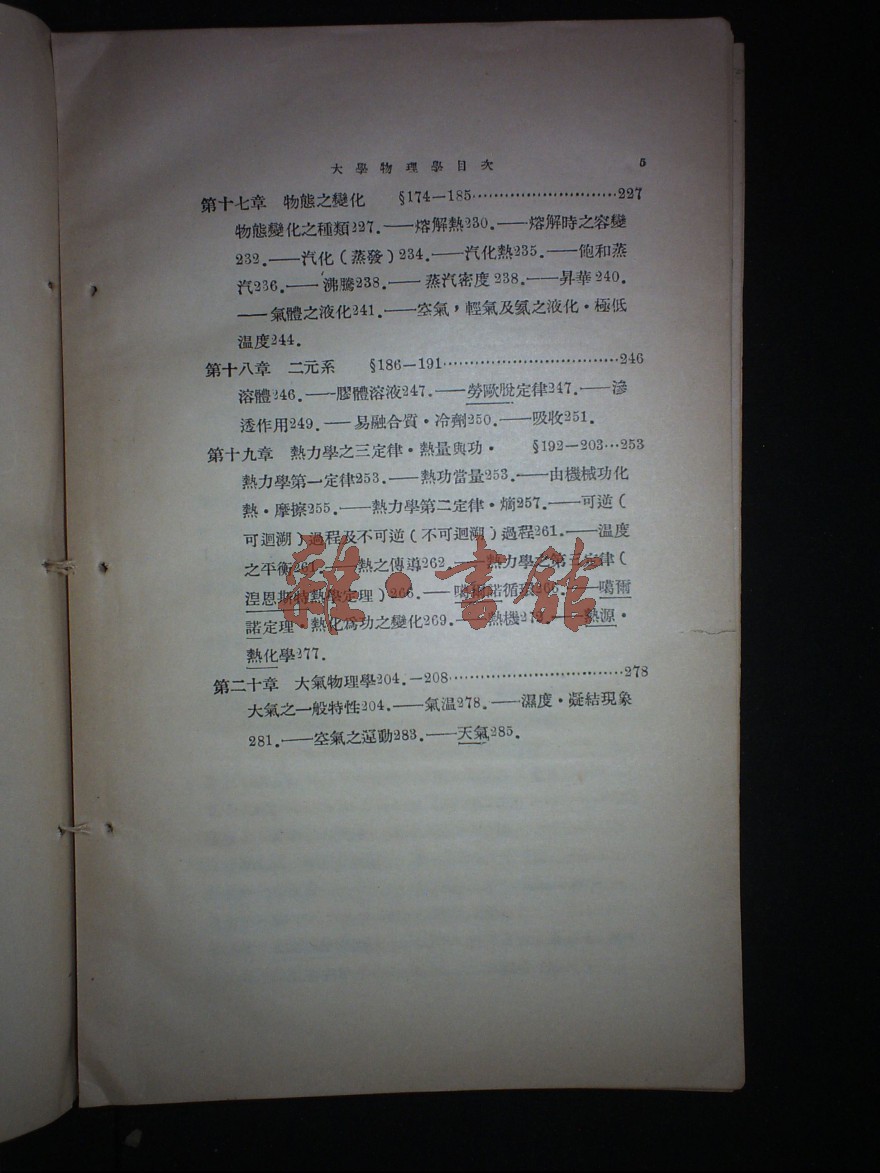 大學物理學目次 5
第十七章 物態之變化 §174—185⋯⋯⋯⋯⋯⋯⋯⋯⋯227
物態變化之種類227.——熔解熱230.——熔解時之容變
232.——汽化(蒸發)234.——汽化熱235.——飽和蒸
汽236.——沸騰238.——蒸汽密度238.——昇華240.
——氣體之液化241.——空氣,輕氣及氦之液化·極低
温度244.
第十八章 二元系 §186—191⋯⋯⋯⋯⋯⋯⋯⋯⋯⋯⋯246
溶體246.——膠體溶液247.——勞歐脫定律247.——滲
透作用249.——易融合質·冷劑250.——吸收251.
第十九章 熱力學之三定律·熱量與功· §192—203⋯253
熱力學第一定律253.——熱功當量253.——由機械功化
熱·摩擦255.——熱力學第二定律·熵257.——可逆(
可迴溯)過程及不可逆(不可迴溯)過程261.——温度
之平衡261.——熱之傳導262.——熱力學之第三定律(
湼恩斯特熱學定理)266.——噶爾諾循環266.——噶爾
諾定理·熱化為功之變化269.——熱機272.——熱源·
熱化學277.
第二十章 大氣物理學204.—208⋯⋯⋯⋯⋯⋯⋯⋯⋯⋯278
大氣之一般特性204.——氣温278.——濕度·凝結現象
281.——空氣之運動283.——天氣285.
雜·書館